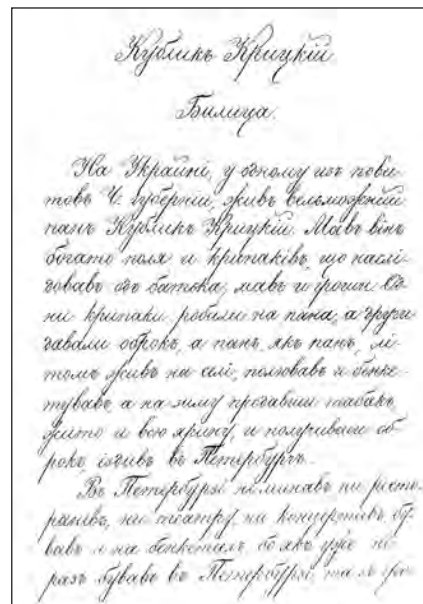 Кубликъ Крицкій
Билица.
На Украйні, у одному изъ пови-
товъ Ч. губерніи, живъ вельможній
панъ Кубликъ Крицкій. Мавъ вінъ
богато поля и крипаківъ, що наслі-
довавъ одъ батька, мавъ и гроши. Од-
ни крипаки робили на пана, а други
давали оброкъ, а панъ, якъ панъ, лі-
томъ живъ на селі, полювавъ и бенке-
тувавъ, а на зиму продавши табакъ,
жито и всю ярину, и получивши об-
рокъ іздивъ въ Петербургъ.
Въ Петербурзі не минавъ ни ресто-
ранивъ, ни театру, ни концертивъ, бу-
вавъ и на бенкетахъ, бо якъ уже не
разъ бувавъ въ Петербурзі, та